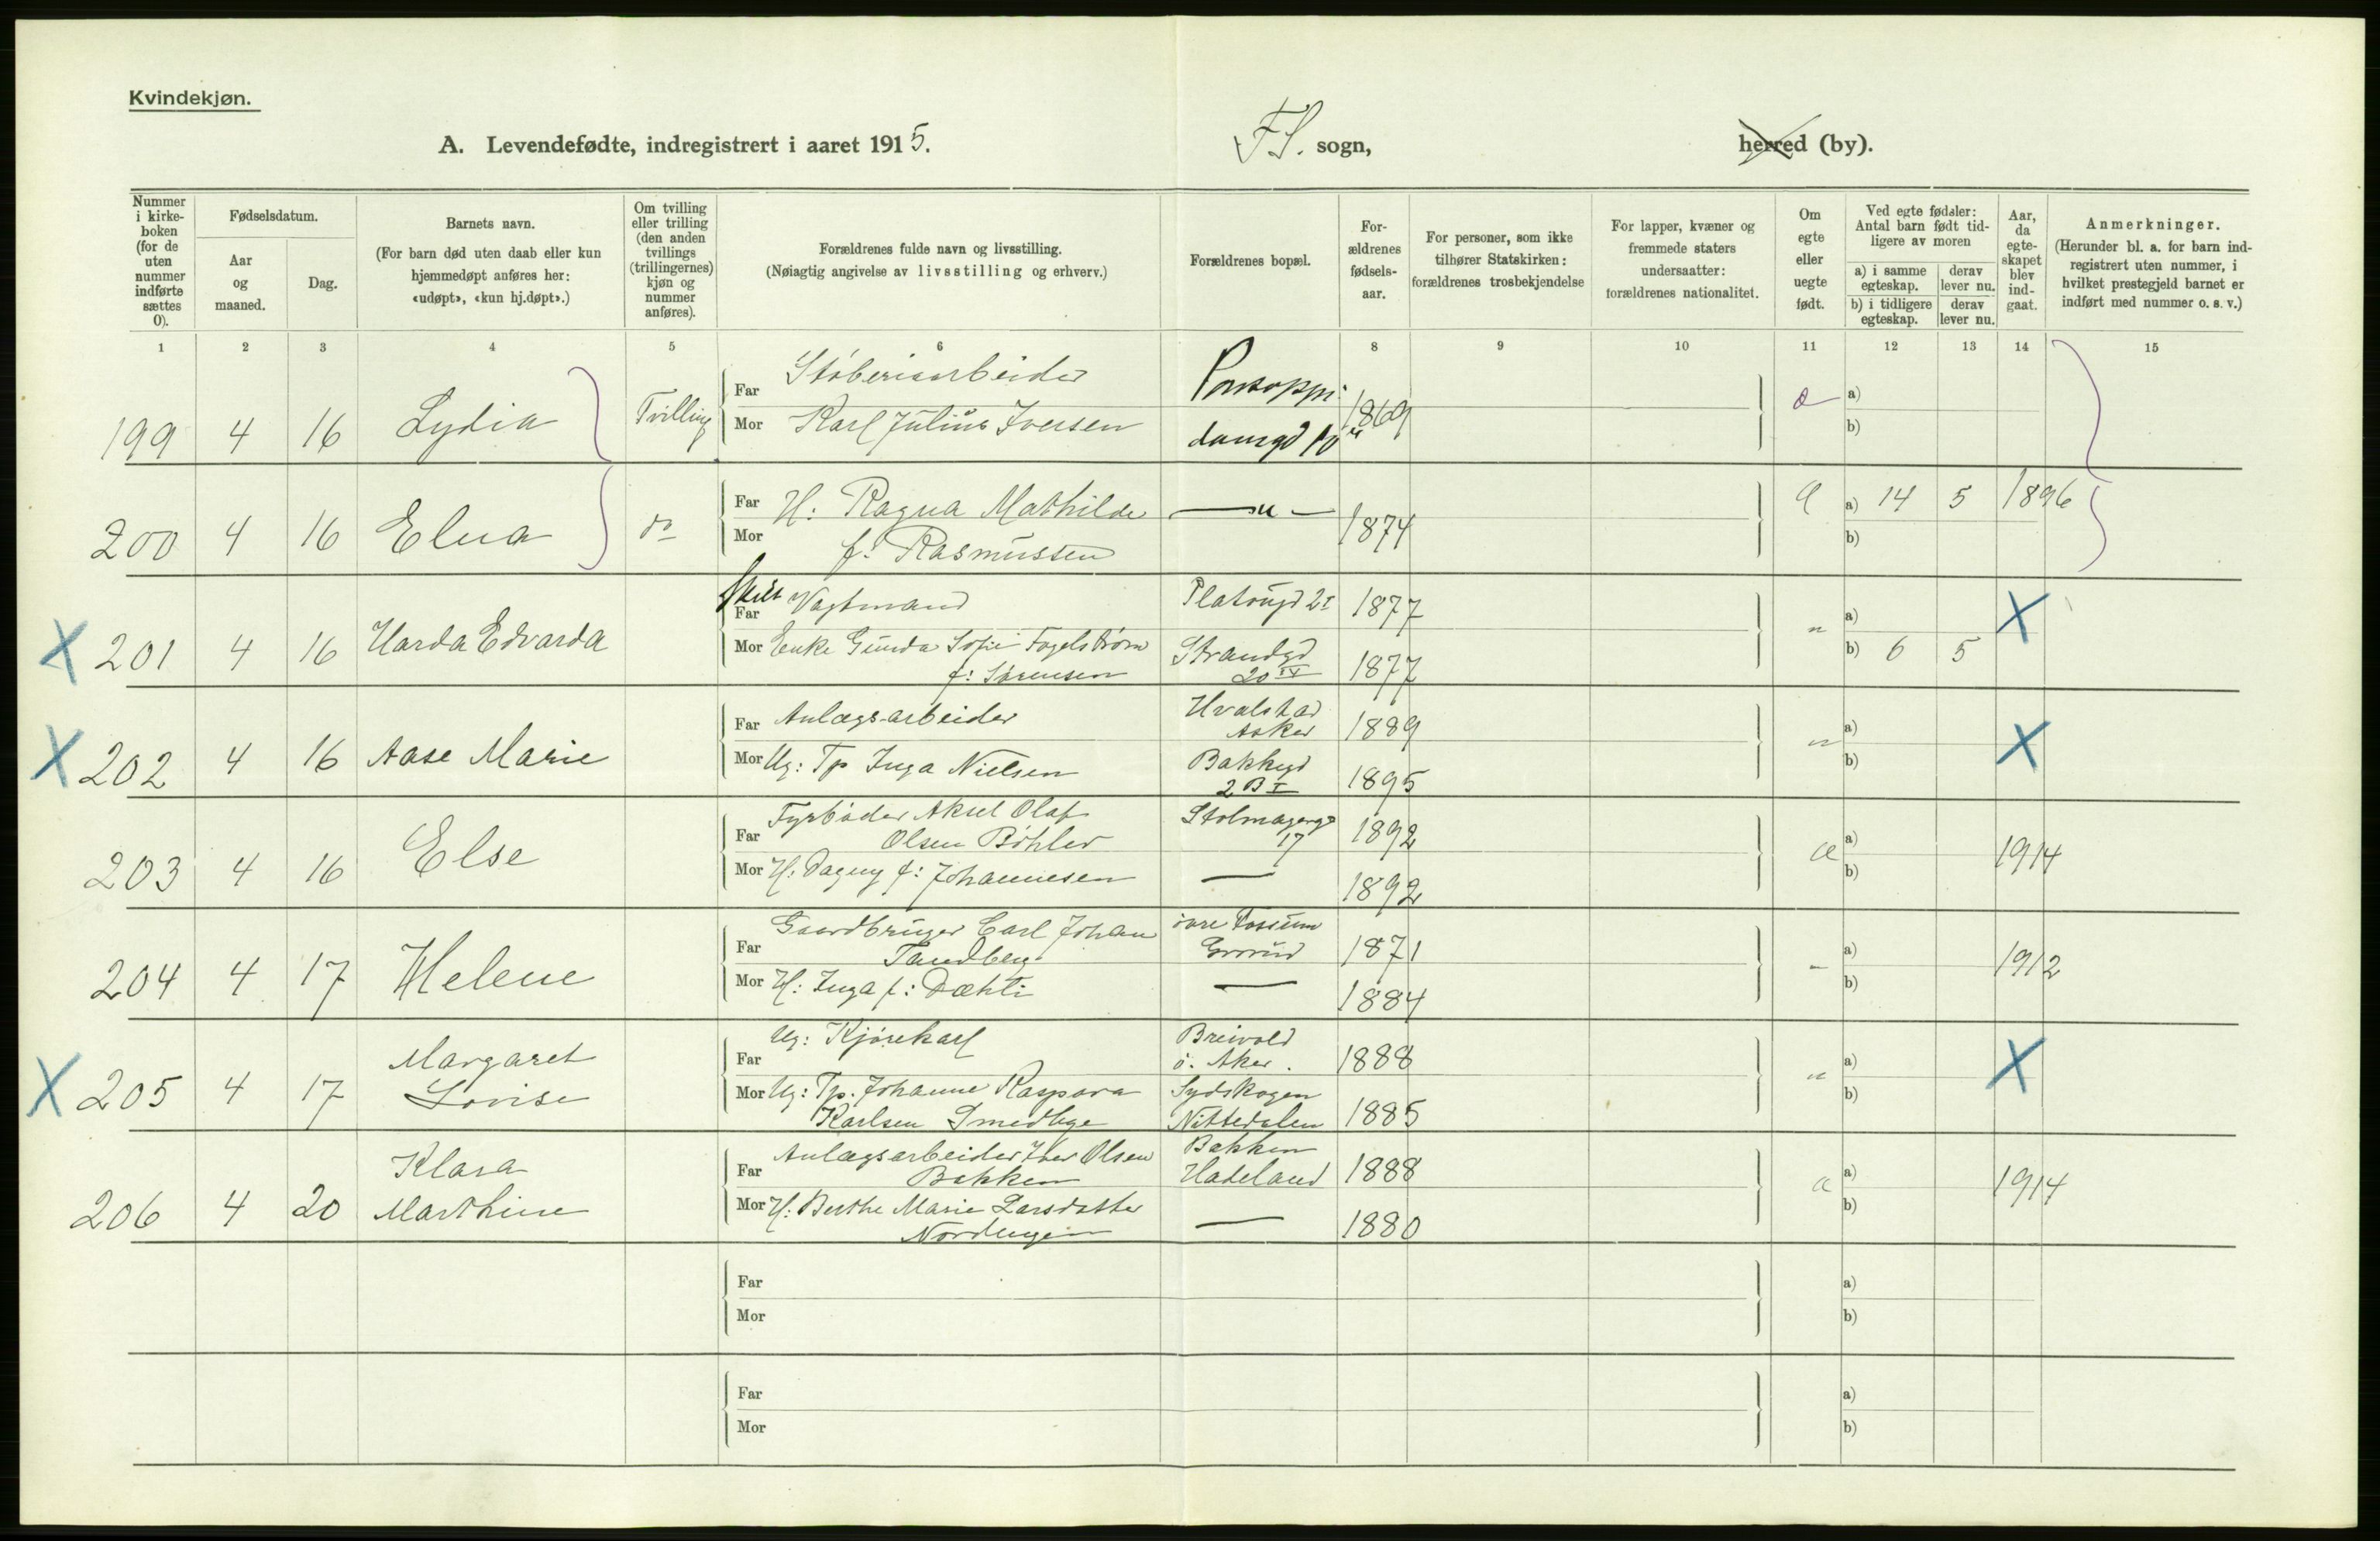 Kvindekjøn.
A. Levendefødte, indregistrert i aaret 1915.
F.S. sogn,
herred (by).
Nummer i kirke-boken (for de uten nummer indførte sættes 0).
Fødselsdatum.
Aar og maaned.
Dag.
Barnets navn.
(For barn død uten daab eller kun hjemmedøpt anføres her: «udøpt», «kun hj.døpt».)
Om tvilling eller trilling (den anden tvillings (trillingernes) kjøn og nummer anføres).
Forældrenes fulde navn og livsstilling.
(Nøiagtig angivelse av livsstilling og erhverv.)
Forældrenes bopæl.
For-ældrenes fødsels-aar.
For personer, som ikke tilhører Statskirken: forældrenes trosbekjendelse
For lapper, kvæner og fremmede staters undersaatter: forældrenes nationalitet.
Om egte eller uegte født.
Ved egte fødsler: Antal barn født tid-ligere av moren
a) i samme egteskap.
derav lever nu.
b) i tidligere egteskap.
derav lever nu.
Aar, da egte-skapet blev ind-gaat.
Anmerkninger.
(Herunder bl. a. for barn ind-registrert uten nummer, i hvilket prestegjeld barnet er indført med nummer o. s. v.)
1 2 3 4 5 6 8 9 10 11 12 13 14 15
199 4 16 Lydia Tvilling
Far Støberiarbeider
Mor Karl Julius Iversen
1869
a)
b)
200 4 16 Elna do
Far H: Ragna Mathilde
Mor f: Rasmussen
— " — 1874
a) 14 5 1896
b)
X 201 4 16 Harda Edvarda
Skilt
Far Vagtmand Platougd 2 I 1877
Mor Enke Gunda Sofie Fagelstrøm
f: Sørensen
Strandgd 20 IV 1877
" a) X
b) 6 5
X 202 4 16 Aase Marie
Far Anlægsarbeider Hvalstad Asker 1889
Mor Ug: Tp Inga Nielsen Bakkegd 2 B I 1895
" a) X
b)
203 4 16 Else
Far Fyrbøder Aksel Olaf
Olsen Bøhler
Stolmagergd 17 1892
Mor H. Dagny f: Johannesen — 1892
a) 1914
b)
204 4 17 Helene
Far Gaardbruger Carl Johan
Tandberg
øvre Fossum Grorud 1871
Mor H: Inga f: Dæhli — 1884
" a) 1912
b)
X 205 4 17 Margaret Lovise
Far Ug: Kjørekarl Breivold ø. Aker. 1888
Mor Ug: Tp. Johanne Kaspara
Karlsen Smedhge
Sydskogen Nittedalen 1885
" a) X
b)
206 4 20 Klara Marthine
Far Anlægsarbeider Iver Olsen
Bakken
Bakken Hadeland 1888
Mor H: Berthe Marie Larsdatter
Nordengen
— 1880
a a) 1914
b)
Far
Mor
a)
b)
Far
Mor
a)
b)